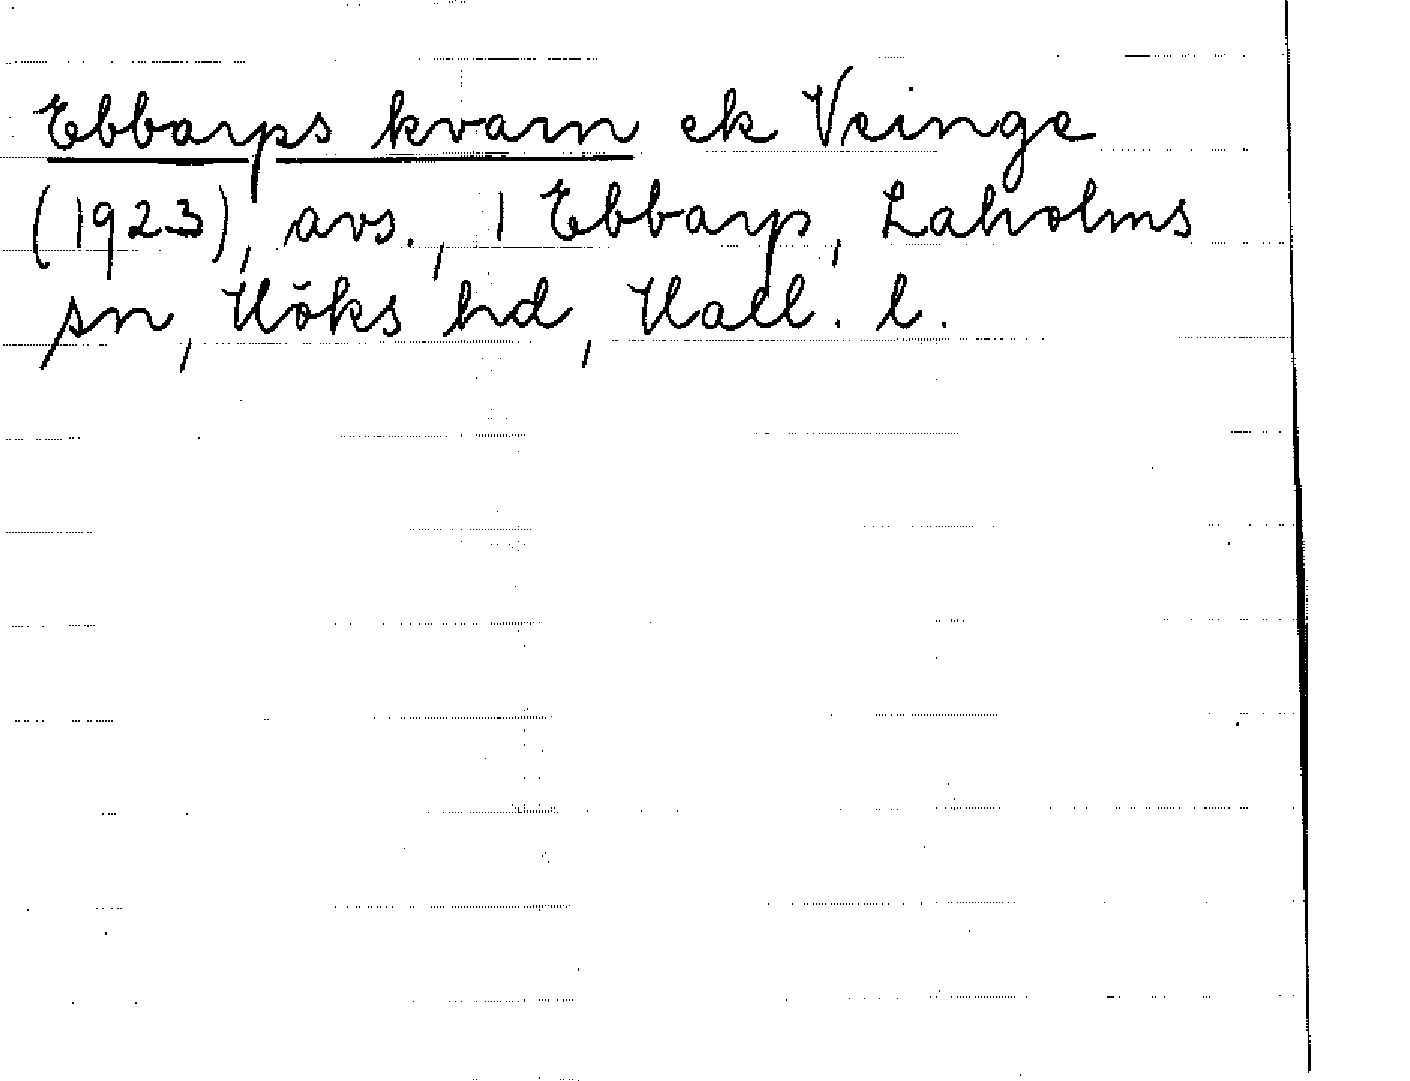 Ebbarps kvarn ek Veinge
(1923), avs., 1 Ebbarp, Laholms
sn, Höks hd, Hall. l.